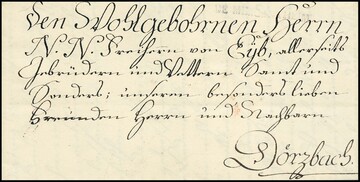 Den Wohlgebohrnen Herrn
N. N. Freihern von Eÿb, allerseits
Gebrüdern und Vettern Samt und
Sonders; unseren besonders lieben
Freunden Herrn und Nachbarn
Dörzbach.